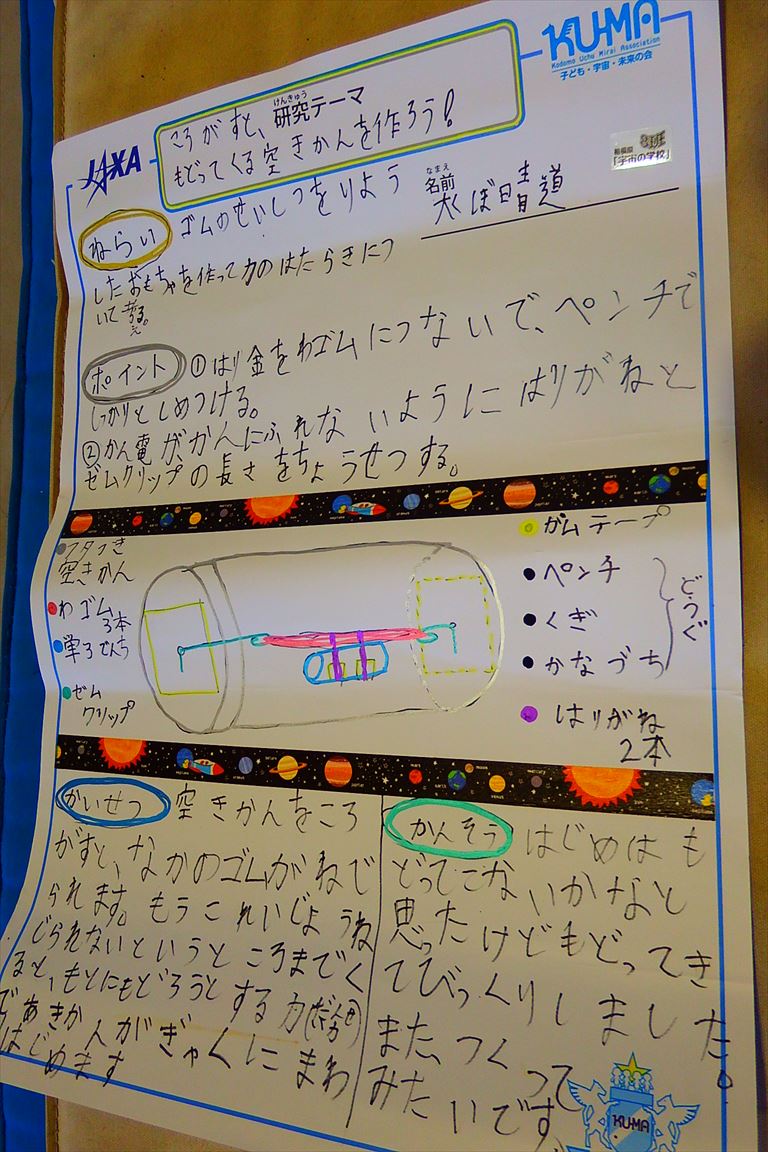 KU-MA
Kodomo Uchu Mirai Association
子ども・宇宙・未来の会
JAXA
けんきゅう
研究テーマ
ころがすと、
もどってくる空きかんを作ろう!
「宇宙の学校」
なまえ
名前
大くぼ晴道
ねらい ゴムのせいしつをりよう
したおもちゃを作って力のはたらきにつ
いて考える。
ポイント ①はり金をわゴムにつないで、ペンチで
しっかりとしめつける。
②かん電が、かんにふれないようにはりがねと
ゼムクリップの長さをちょうせつする。
フタつき
空きかん
わゴム
3本
単3でんち
ゼム
クリップ
ガムテープ
ペンチ
くぎ
かなづち
どうぐ
はりがね
2本
かいせつ 空きかんをころ
がすと、なかのゴムがねじ
られます。もうこれいじょうね
じられないというところまでく
ると、もとにもどろうとする力
であきかんがぎゃくにまわ
はじめます
かんそう はじめはも
どってこないかなと
思ったけどもどってき
てびっくりしました。
また、つくって
みたいです
KU-MA